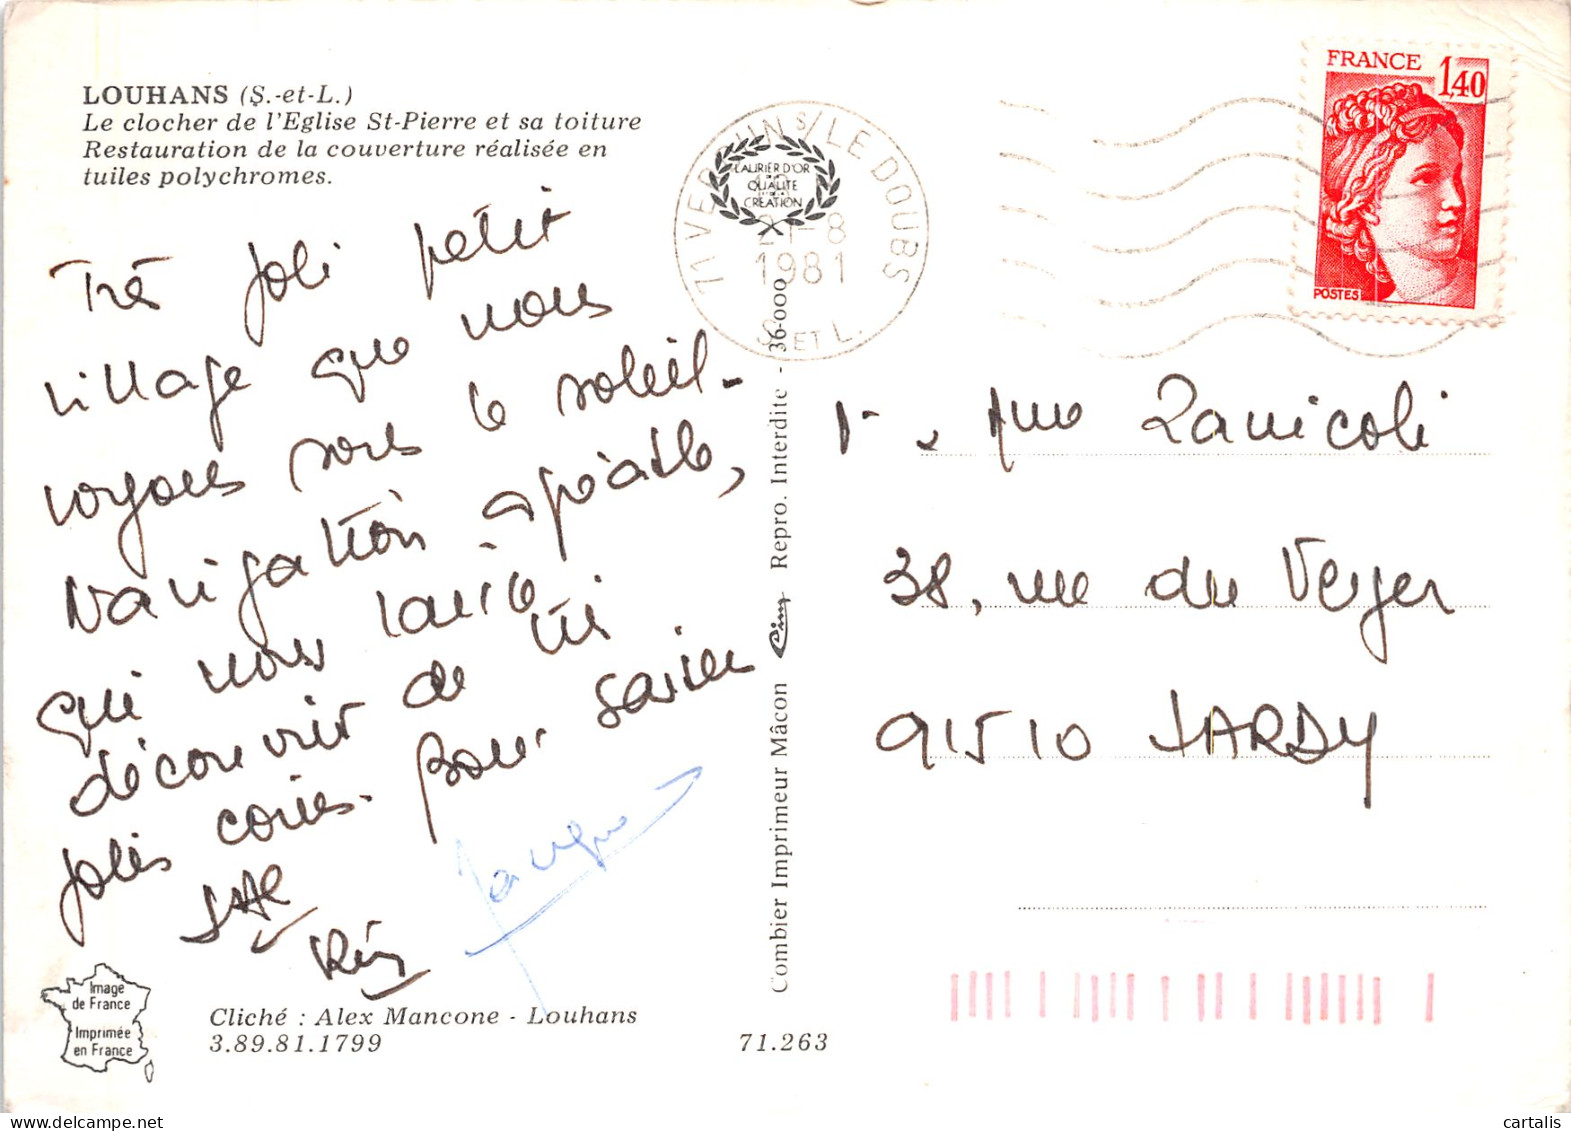 LOUHANS (S.-et-L.)
Le clocher de l'Eglise St-Pierre et sa toiture
Restauration de la couverture réalisée en
tuiles polychromes.
Très joli petit
village que nous
voyons sous le soleil-
Navigation agréable,
qui nous laisse
découvrir de
jolis coins. Bons baisers
Jacques
Image
de France
Imprimée
en France
Cliché : Alex Mancone - Louhans
3.89.81.1799
71.263
Combier Imprimeur Mâcon Cim Repro. Interdite - 36-000
LAURIER D'OR
QUALITÉ
CRÉATION
71 VERDUN S/ LE DOUBS
21-8
1981
S. ET L.
FRANCE
1,40
POSTES
Mme Zanicoli
38, rue du Verger
91510 LARDY
cartalis